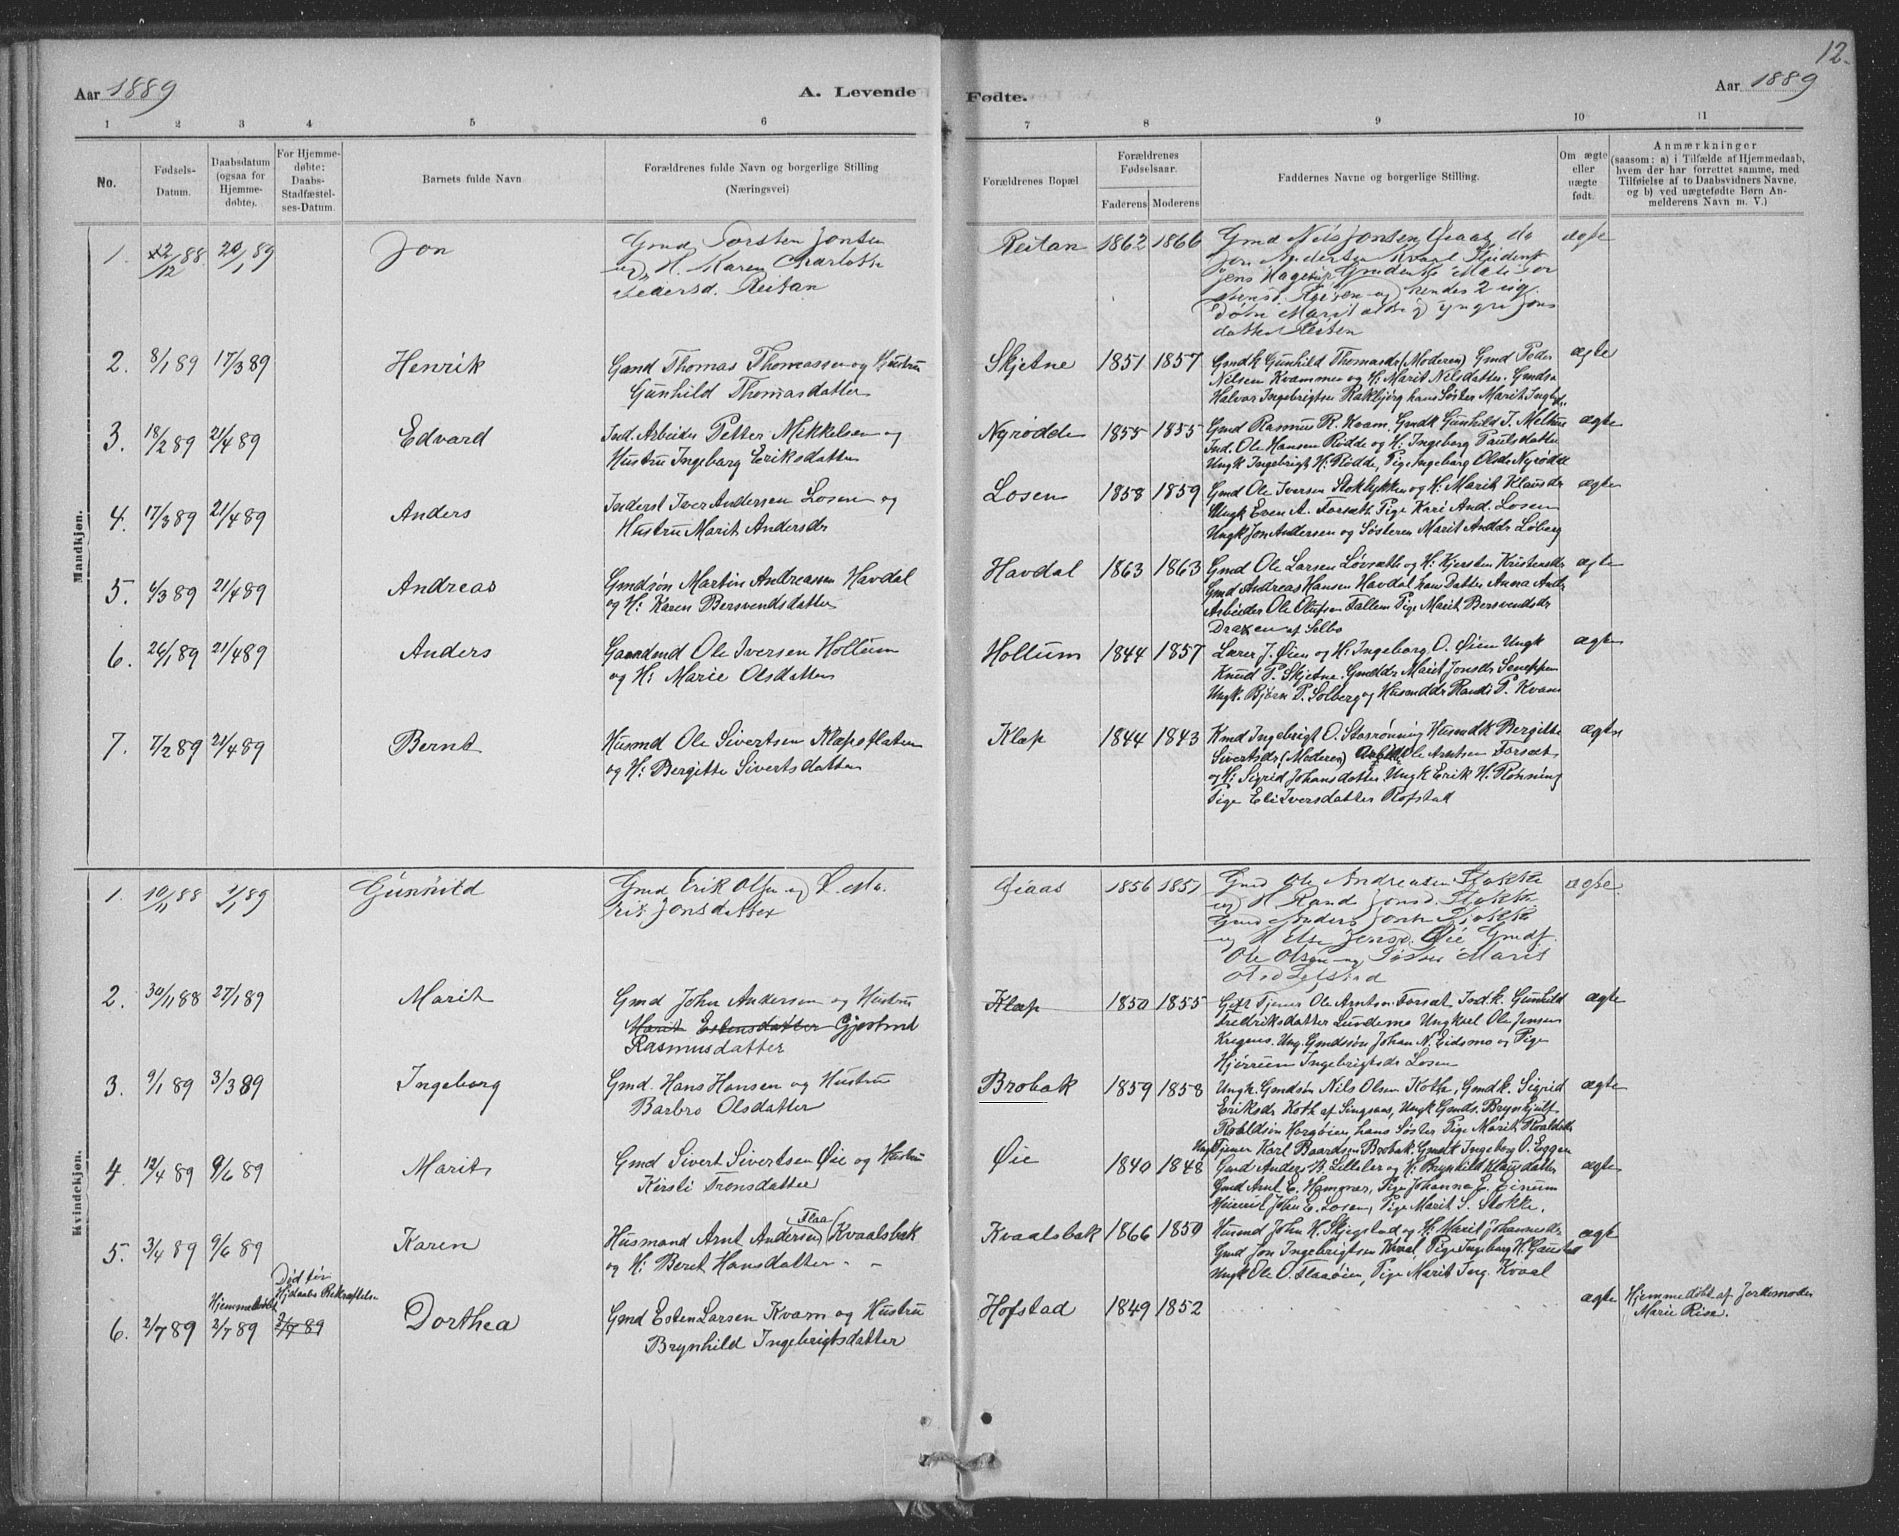 12.
Aar 1889
A. Levende
Fødte.
Aar 1889
1 2 3 4 5 6
7 8 9 10 11
No.
Fødsels-
Datum.
Daabsdatum
(ogsaa for
Hjemme-
døbte).
For Hjemme-
døbte:
Daabs-
Stadfæstel-
ses-Datum.
Barnets fulde Navn
Forældrenes fulde Navn og borgerlige Stilling
(Næringsvei)
Forældrenes Bopæl
Forældrenes
Fødselsaar.
Faderens Moderens
Faddernes Navne og borgerlige Stilling.
Om ægte
eller
uægte
født.
Anmærkninger
(saasom: a) i Tilfælde af Hjemmedaab,
hvem der har forrettet samme, med
Tilføielse af to Daabsvidners Navne,
og b) ved uægtefødte Børn An-
melderens Navn m. V.)
Mandkjøn.
1. 20/1 89 Jon
Gmd Torsten Jonsen
og H. Karen Charlotte
Pedersd. Reitan
Reitan 1862 1866
Gmd Nils Jonsen
ægte
2. 8/1 89 17/3 89 Henrik
Gard Thomas Thomassen og Hustru
Gunhild Thomasdatter
Skjetne 1851 1857
Gmdk Gunhild Thomasdr (Moderen) Gmd Peder
Nilsen Kvammen og H: Marit Nilsdatter. Gmds
Halvor Ingebrigtsen Rakbjørg hans Søster Marit Ingbd.
ægte
3. 18/2 89 21/4 89 Edvard
Ind. Arbeider Petter Mikkelsen og
Hustru Ingeborg Eriksdatter
Nyrødde 1855 1855
Gmd Rasmus R. Kvam. Gmdk Gunhild I. Melhus
Ind. Ole Hansen Rødde og H: Ingeborg Paulsdatter
Ungk Ingebrigt H: Rødde, Pige Ingeborg Olsdr Nyrødde
ægte
4. 17/3 89 21/4 89 Anders
Inderst Iver Andersen Losen og
Hustru Marit Andersdr
Losen 1858 1859
Gmd Ole Iversen Stoklykken og H: Marit Klausdr
Ungk Even A. Forsæth Pige Kari And. Losen
Ungk Jon Andersen og Søsteren Marit Anddr Løberg
ægte
5. 4/3 89 21/4 89 Andreas
Gmdsøn Martin Andreassen Havdal
og H: Karen Bersvendsdatter
Havdal 1863 1863
Gmd Ole Larsen Løvsæth og H: Kjersten Kristensdr
Gmd Andreas Hansen Havdal hans Datter Anna Andr
Arbeider Ole Olufsen Tallem Pige Marit Bersvendsdr
Draxen af Selbo
ægte
6. 26/1 89 21/4 89 Anders
Gaardmd Ole Iversen Hollum
og H: Marie Olsdatter
Hollum 1844 1857
Lærer J. Øien og H: Ingeborg O. Øien Ungk
Knud P. Skjetne. Gmddr Marit Jonsdr
Ungk. Bjørn P. Solberg og Husmddr Randi P. Kvam
ægte
7. 7/2 89 21/4 89 Bernt
Husmd Ole Sivertsen Klæpsflaten
og H: Bergitte Sivertsdatter
Klæp 1844 1843
Kmd Ingebrigt O. Storrønning Husmdk Bergitte
Sivertsdr (Moderen) Ole Arntsen Forsæt
og H: Sigrid Johansdatter Ungk Erik H. Rønning
Pige Eli Iversdatter Rofstad
ægte
Kvindekjøn.
1. 10/11 88 1/1 89 Gunhild
Gmd Erik Olsen og H. Ma-
rit Jonsdatter
1856 1851
Gmd Ole Andreasen Stokke
og H Rand Jonsd. Stokke
Gmd Anders Jonsen Stokke
og H Else Jensd. Øie Gmdf.
Ole Olsen og Søster Marit
ægte.
2. 30/11 88 27/1 89 Marit
Gmd John Andersen og Hustru
Marit Estensdatter Gjertrud
Rasmusdatter
Klæp 1850 1855
Gift Tjener Ole Arntsen Forsæt Ind.k. Gunhild
Fredriksdatter Lundemo Ungkarl Ole Jensen
Kregnes. Ung. Gmdssøn Johan N. Eidsmo og Pige
Ingebrigtsdr Losen
ægte
3. 9/1 89 3/3 89 Ingeborg
Gmd. Hans Hansen og Hustru
Barbro Olsdatter
Brobak 1859 1858
Ungk. Gmdsøn Nils Olsen Koth, Gmdk. Sigrid
Eriksdr Koth af Singsaas, Ungk Gmds. Brynhjulf
Roaldsøn Horgøien, hans Søster Pige Marit Roaldsdr
Ung Tjener Karl Baardsen Brobak. Gmdk Ingeborg O. Eggen
ægte
4. 12/4 89 9/6 89 Marit
Gmd Sivert Sivertsen Øie og Hustru
Kirsti Tronsdatter
Øie 1840 1848
Gmd Anders B. Lilleler og H: Brynhild Klausdatter
Gmd Arnt E. Hamnær, Pige Johanna
John E. Losen, Pige Marit S. Stokke.
ægte
5. 3/4 89 9/6 89 Karen
Husmand Arnt Andersen (Flaa) Kvaalsbak
og H: Beret Hansdatter. -
Kvaalsbak 1866 1850
Husmd John H. Skjegstad og H: Marit Johannesdr
Gmd Jon Ingebrigtsen Kvaal, Pige Ingeborg H. Gaustad
Ungk Ole O. Flaaøien, Pige Marit Ing. Kvaal
ægte
Død før
Hjdaabs Bekræftelse
Hjemmedøbt
6. 2/7 89 2/7 89 2/7 89 Dorthea
Gmd Esten Larsen Kvam og Hustru
Brynhild Ingebrigtsdatter
Hofstad 1849 1852
ægte
Hjemmedøbt af Jordemoder
Marie Rise.